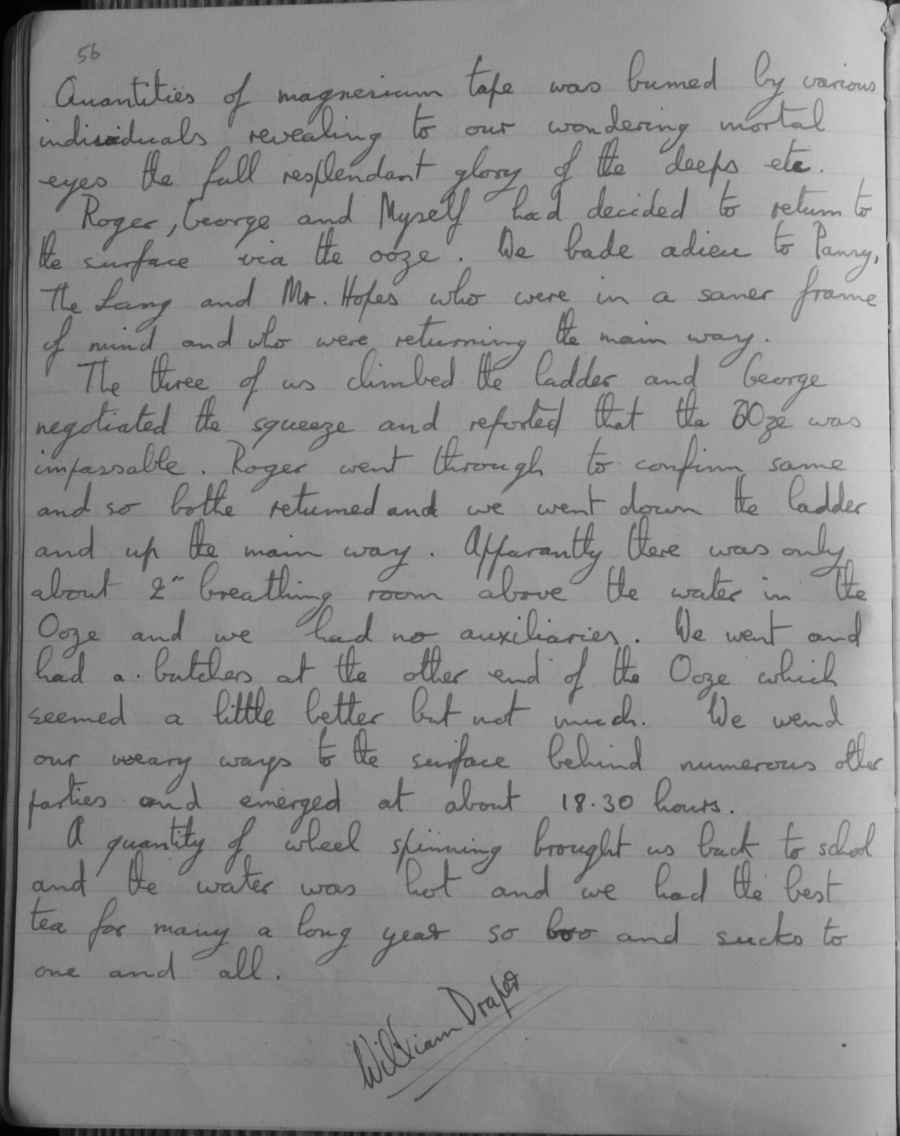 56
Quantities of magnesium tape was burned by various
individuals revealing to our wondering mortal
eyes the full resplendant glory of the deeps etc.
Roger, George and Myself had decided to return to
the surface via the ooze. We bade adieu to Panzy,
The Lang and Mr. Hopes who were in a saner frame
of mind and who were returning the main way.
The three of us climbed the ladder and George
negotiated the squeeze and reported that the OOze was
impassable. Roger went through to confirm same
and so bothe returned and we went down the ladder
and up the main way. Apparantly there was only
about 2" breathing room above the water in the
Ooze and we had no auxiliaries. We went and
had a butchers at the other end of the Ooze which
seemed a little better but not much. We wend
our weary ways to the surface behind numerous other
parties and emerged at about 18.30 hours.
A quantity of wheel spinning brought us back to school
and the water was hot and we had the best
tea for many a long year so boo and sucks to
one and all.
William Draper